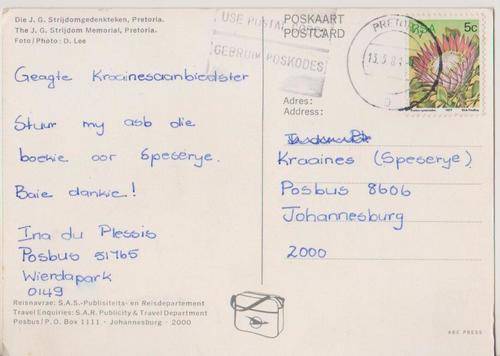 Die J. G. Strijdomgedenkteken, Pretoria.
The J. G. Strijdom Memorial, Pretoria.
Foto/Photo: D. Lee
Geagte Kraainesaanbiedster
Stuur my asb die
boekie oor Speserye.
Baie dankie!
Ina du Plessis
Posbus 51765
Wierdapark
0149
Reisnavrae: S.A.S.-Publisiteits- en Reisdepartement
Travel Enquiries: S.A.R. Publicity & Travel Department
Posbus/P.O. Box 1111 · Johannesburg · 2000
USE POSTAL CODES
GEBRUIK POSKODES
POSKAART
POSTCARD
5c
Adres:
Address:
Kraaines (Speserye)
Posbus 8606
Johannesburg
2000
ABC PRESS